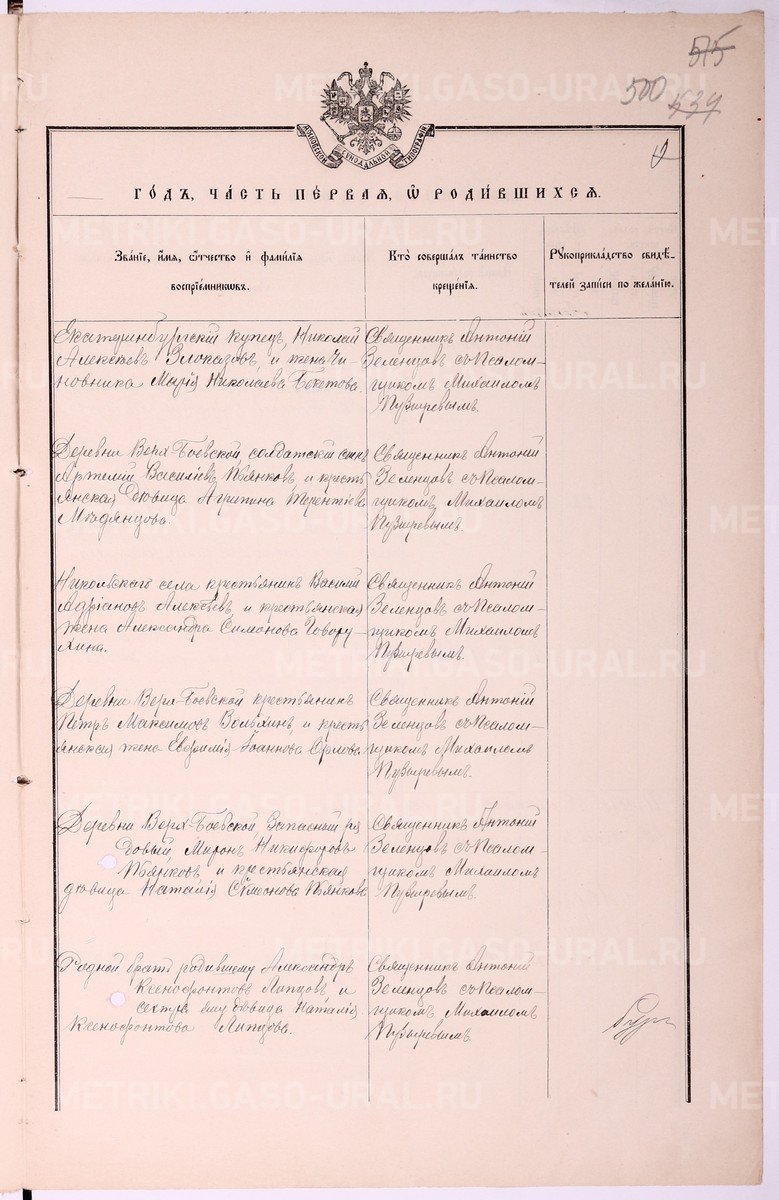 515
500
539
МОСКОВСКОЙ СѴНОДАЛЬНОЙ ТИПОГРАФІИ
ГО́ДЪ, ЧА́СТЬ ПЕ́РВАЯ, Ѡ҆ РОДИ́ВШИХСѦ.
Зва́нїе, и҆́мѧ, ѻ҆́тчество и҆ фами́лїѧ
воспрїе́мниковъ.
Кто̀ соверша́лъ та́инство
креще́нїѧ.
Рꙋкоприкла́дство свидѣ́-
телей за́писи по жела́нїю.
Екатеринбургскій купецъ, Николай
Алексѣевъ Злоказовъ, и жена Чи-
новника Марія Николаева Бекетова.
Священникъ Антоній
Зеленцовъ съ Псалом-
щикомъ Михаиломъ
Пузыревымъ.
Деревни Верх-Боевской солдатскій сынъ
Артемій Василіевъ Пьянковъ, и кресть
янская дѣвица Агрипина Терентіева
Мѣдянцова.
Священникъ Антоній
Зеленцовъ съ Псалом-
щикомъ Михаиломъ
Пузыревымъ.
Никольскаго села крестьянинъ Василій
Адріановъ Алексѣевъ, и крестьянская
жена Александра Симонова Говору-
хина.
Священникъ Антоній
Зеленцовъ съ Псалом-
щикомъ Михаиломъ
Пузыревымъ.
Деревни Верх-Боевской крестьянинъ
Петръ Максимовъ Вольхинъ, и кресть
янская жена Евфимія Іоаннова Орлова.
Священникъ Антоній
Зеленцовъ съ Псалом-
щикомъ Михаиломъ
Пузыревымъ.
Деревни Верх-Боевской, Запасный ря
довый Миронъ Никифоровъ
Пьянковъ, и крестьянская
дѣвица Наталія Сѵмеонова Пьянкова
Священникъ Антоній
Зеленцовъ съ Псалом-
щикомъ Михаиломъ
Пузыревымъ.
Родной братъ родившему Александръ
Ксенофонтовъ Липцовъ и
сестра ему дѣвица Наталія
Ксенофонтова Липцова.
Священникъ Антоній
Зеленцовъ съ Псалом-
щикомъ Михаиломъ
Пузыревымъ.
METRIKI.GASO-URAL.RU